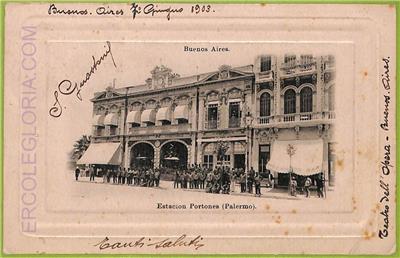 Buenos Aires 7 Giugno 1903.
Buenos Aires.
Estacion Portones (Palermo).
Tanti Saluti
Teatro dell'Opera - Buenos Aires.
ERCOLEGLORIA.COM